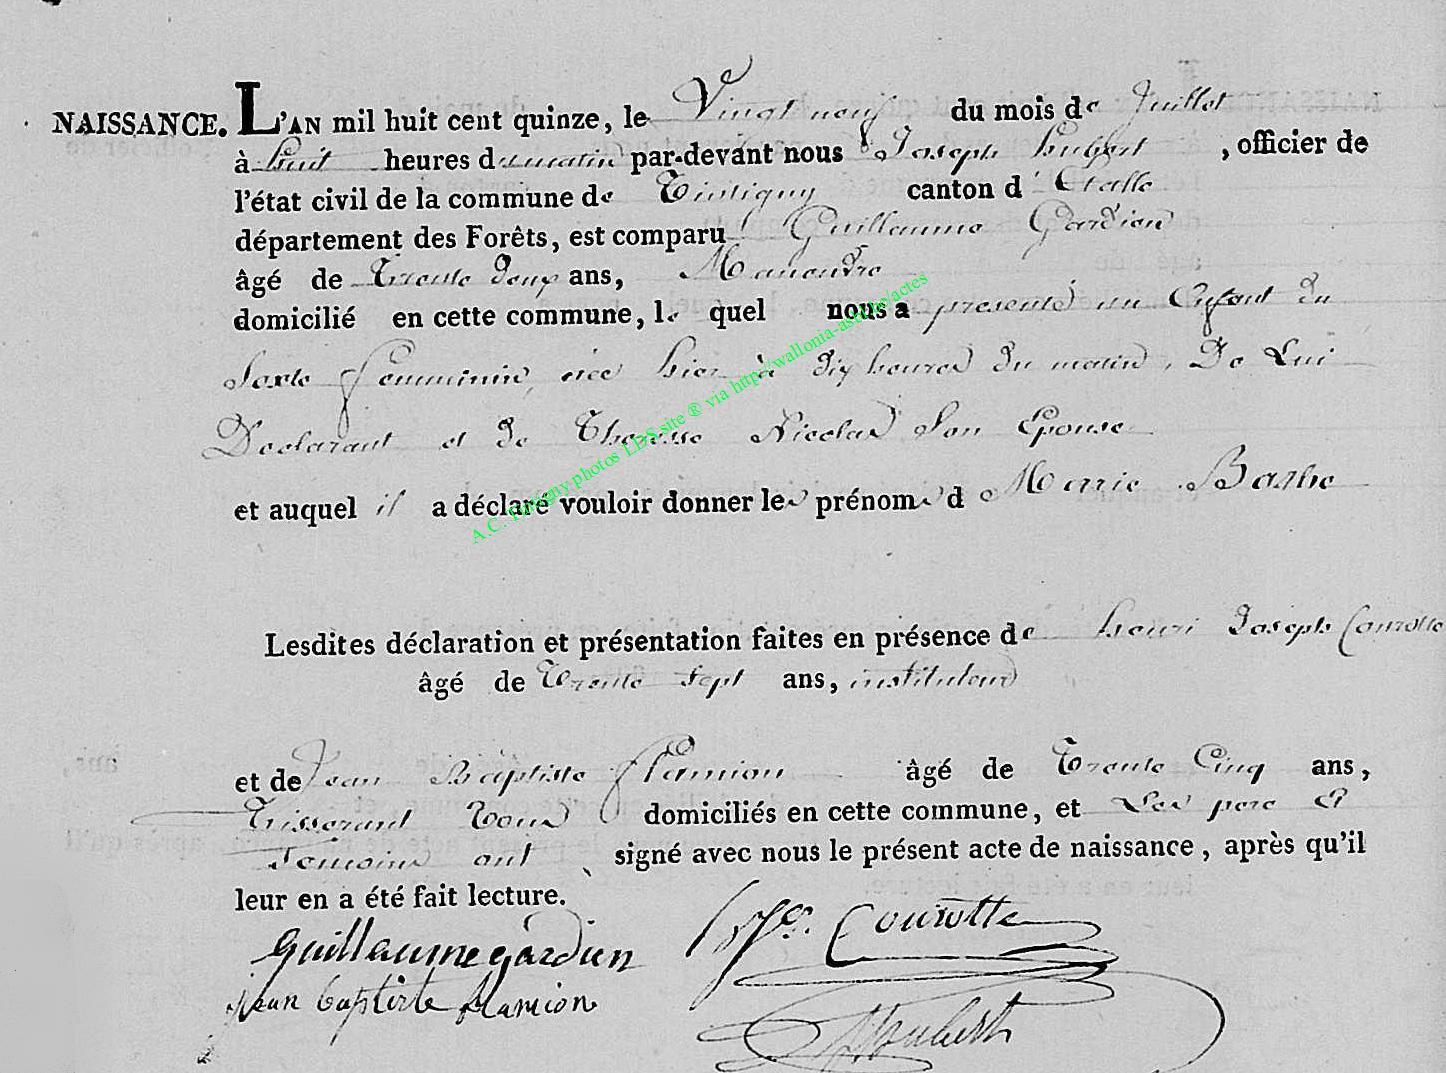 NAISSANCE. L'AN mil huit cent quinze, le Vingt neuf du mois de Juillet
à huit heures du matin par-devant nous Joseph hubert, officier de
l'état civil de la commune de Tintigny canton d'Etalle
département des Forêts, est comparu Guillaume Gardien
âgé de Trente Deux ans, Manoeuvre
domicilié en cette commune, le quel nous a présenté un Enfant du
Sexe feminin, née hier à dix heures du matin, De Lui
Declarant et de Therese Nicolas Son Epouse
et auquel il a déclaré vouloir donner les prénoms de Marie Barbe
Lesdites déclaration et présentation faites en présence de henri Joseph Courotte
âgé de Trente Sept ans, instituteur
et de Jean Baptiste flamion âgé de Trente Cinq ans,
Tisserant Tous domiciliés en cette commune, et Les pere et
Temoins ont signé avec nous le présent acte de naissance, après qu'il
leur en a été fait lecture.
guillaume gardien Courotte
jean baptiste flamion hubert
A.C. Tintigny photos LDS site ® via http://wallonia-asbl.be/actes